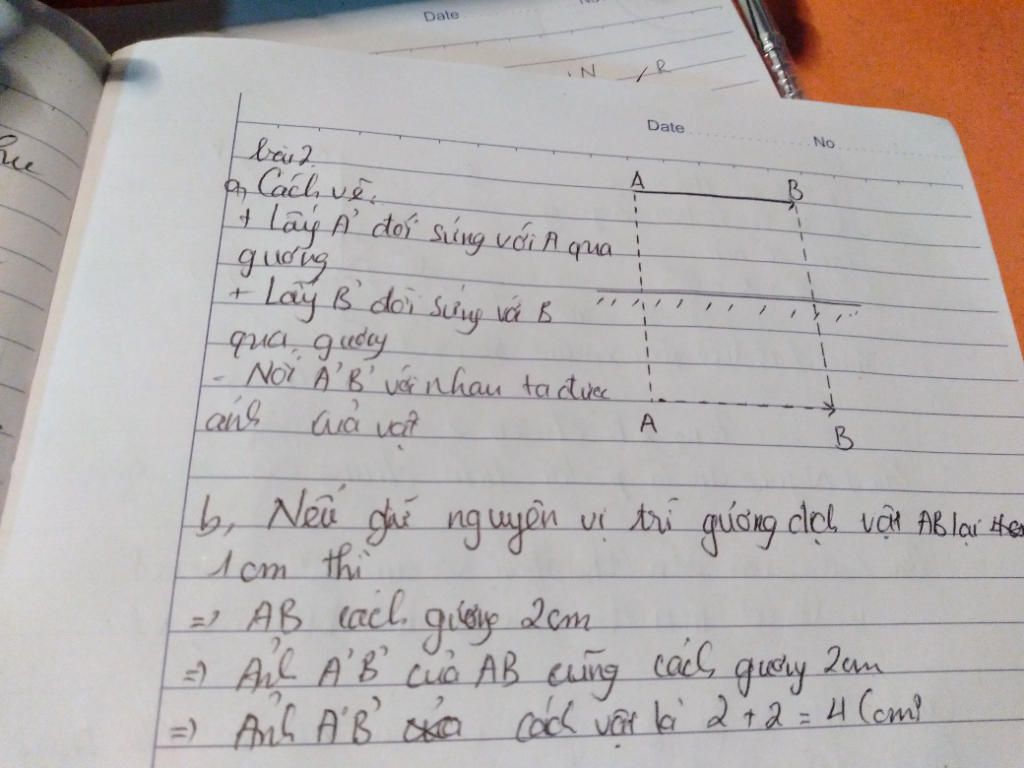 Date
No
N
R
Date
No
bài 2.
a, Cách vẽ:
+ Lấy A' đối sứng với A qua
gương
+ Lấy B' đối sứng với B
qua gương
- Nối A'B' với nhau ta được
ảnh của vật
A
B
A
B
b, Nếu giữ nguyên vị trí gương dịch vật AB lại
1cm thì
=> AB cách gương 2cm
=> Ảnh A'B' của AB cũng cách gương 2cm
=> Ảnh A'B' cách vật là 2 + 2 = 4 (cm)